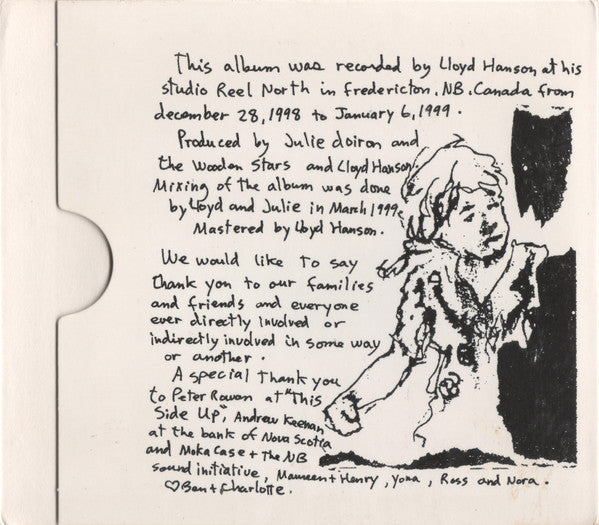 This album was recorded by Lloyd Hanson at his
studio Reel North in Fredericton, NB. Canada from
december 28, 1998 to January 6, 1999.
Produced by Julie doiron and
the Wooden Stars and Lloyd Hanson.
Mixing of the album was done
by Lloyd and Julie in March 1999.
Mastered by Lloyd Hanson.
We would like to say
thank you to our families
and friends and everyone
ever directly involved or
indirectly involved in some way
or another.
A special thank you
to Peter Rowan at "This
Side Up", Andrew Keenan
at the bank of Nova Scotia
and Moka Case + the NB
sound initiative, Maureen + Henry, Yona, Ross and Nora.
♡Ben + Charlotte.